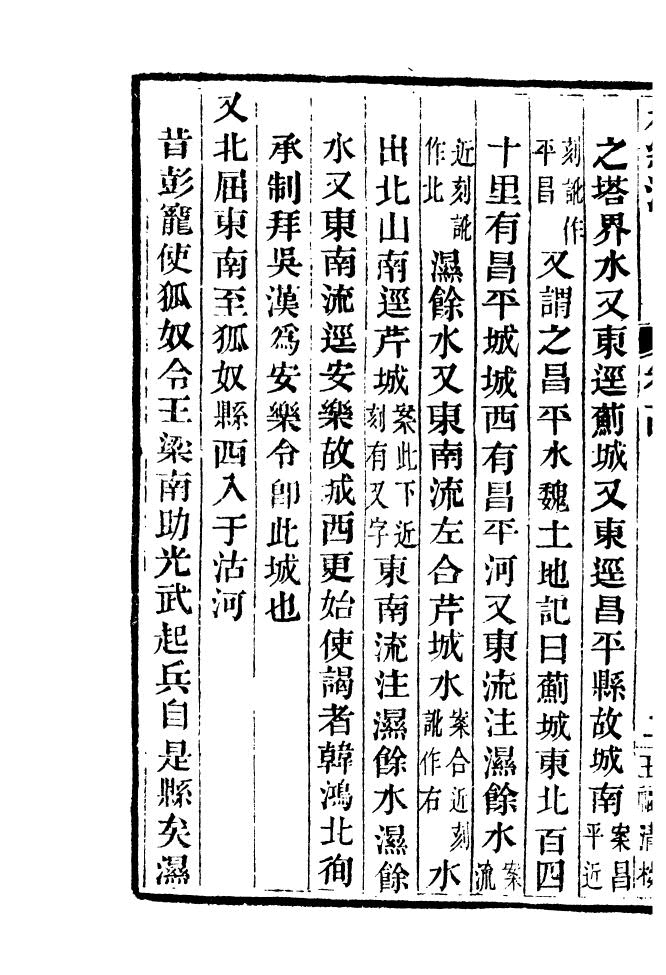 之塔界水又東逕薊城又東逕昌平縣故城南案昌平近
刻訛作平昌又謂之昌平水魏土地記曰薊城東北百四
十里有昌平城城西有昌平河又東流注濕餘水案流
近刻訛作北濕餘水又東南流左合芹城水案合近刻訛作右水
出北山南逕芹城案此下近刻有又字東南流注濕餘水濕餘
水又東南流逕安樂故城西更始使謁者韓鴻北徇
承制拜吳漢爲安樂令卽此城也
又北屈東南至狐奴縣西入于沽河
昔彭寵使狐奴令王梁南助光武起兵自是縣矣濕